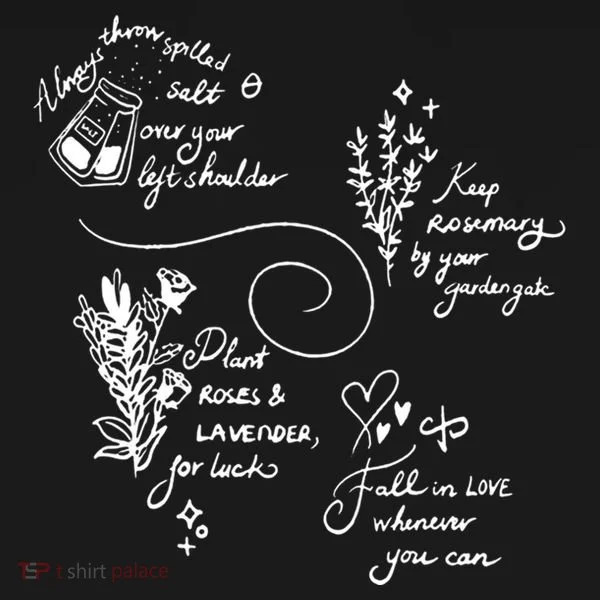 Always throw spilled
salt
over your
left shoulder
SALT
Keep
Rosemary
by your
garden gate
Plant
ROSES &
LAVENDER,
for luck
Fall in LOVE
whenever
you can
TSP t shirt palace